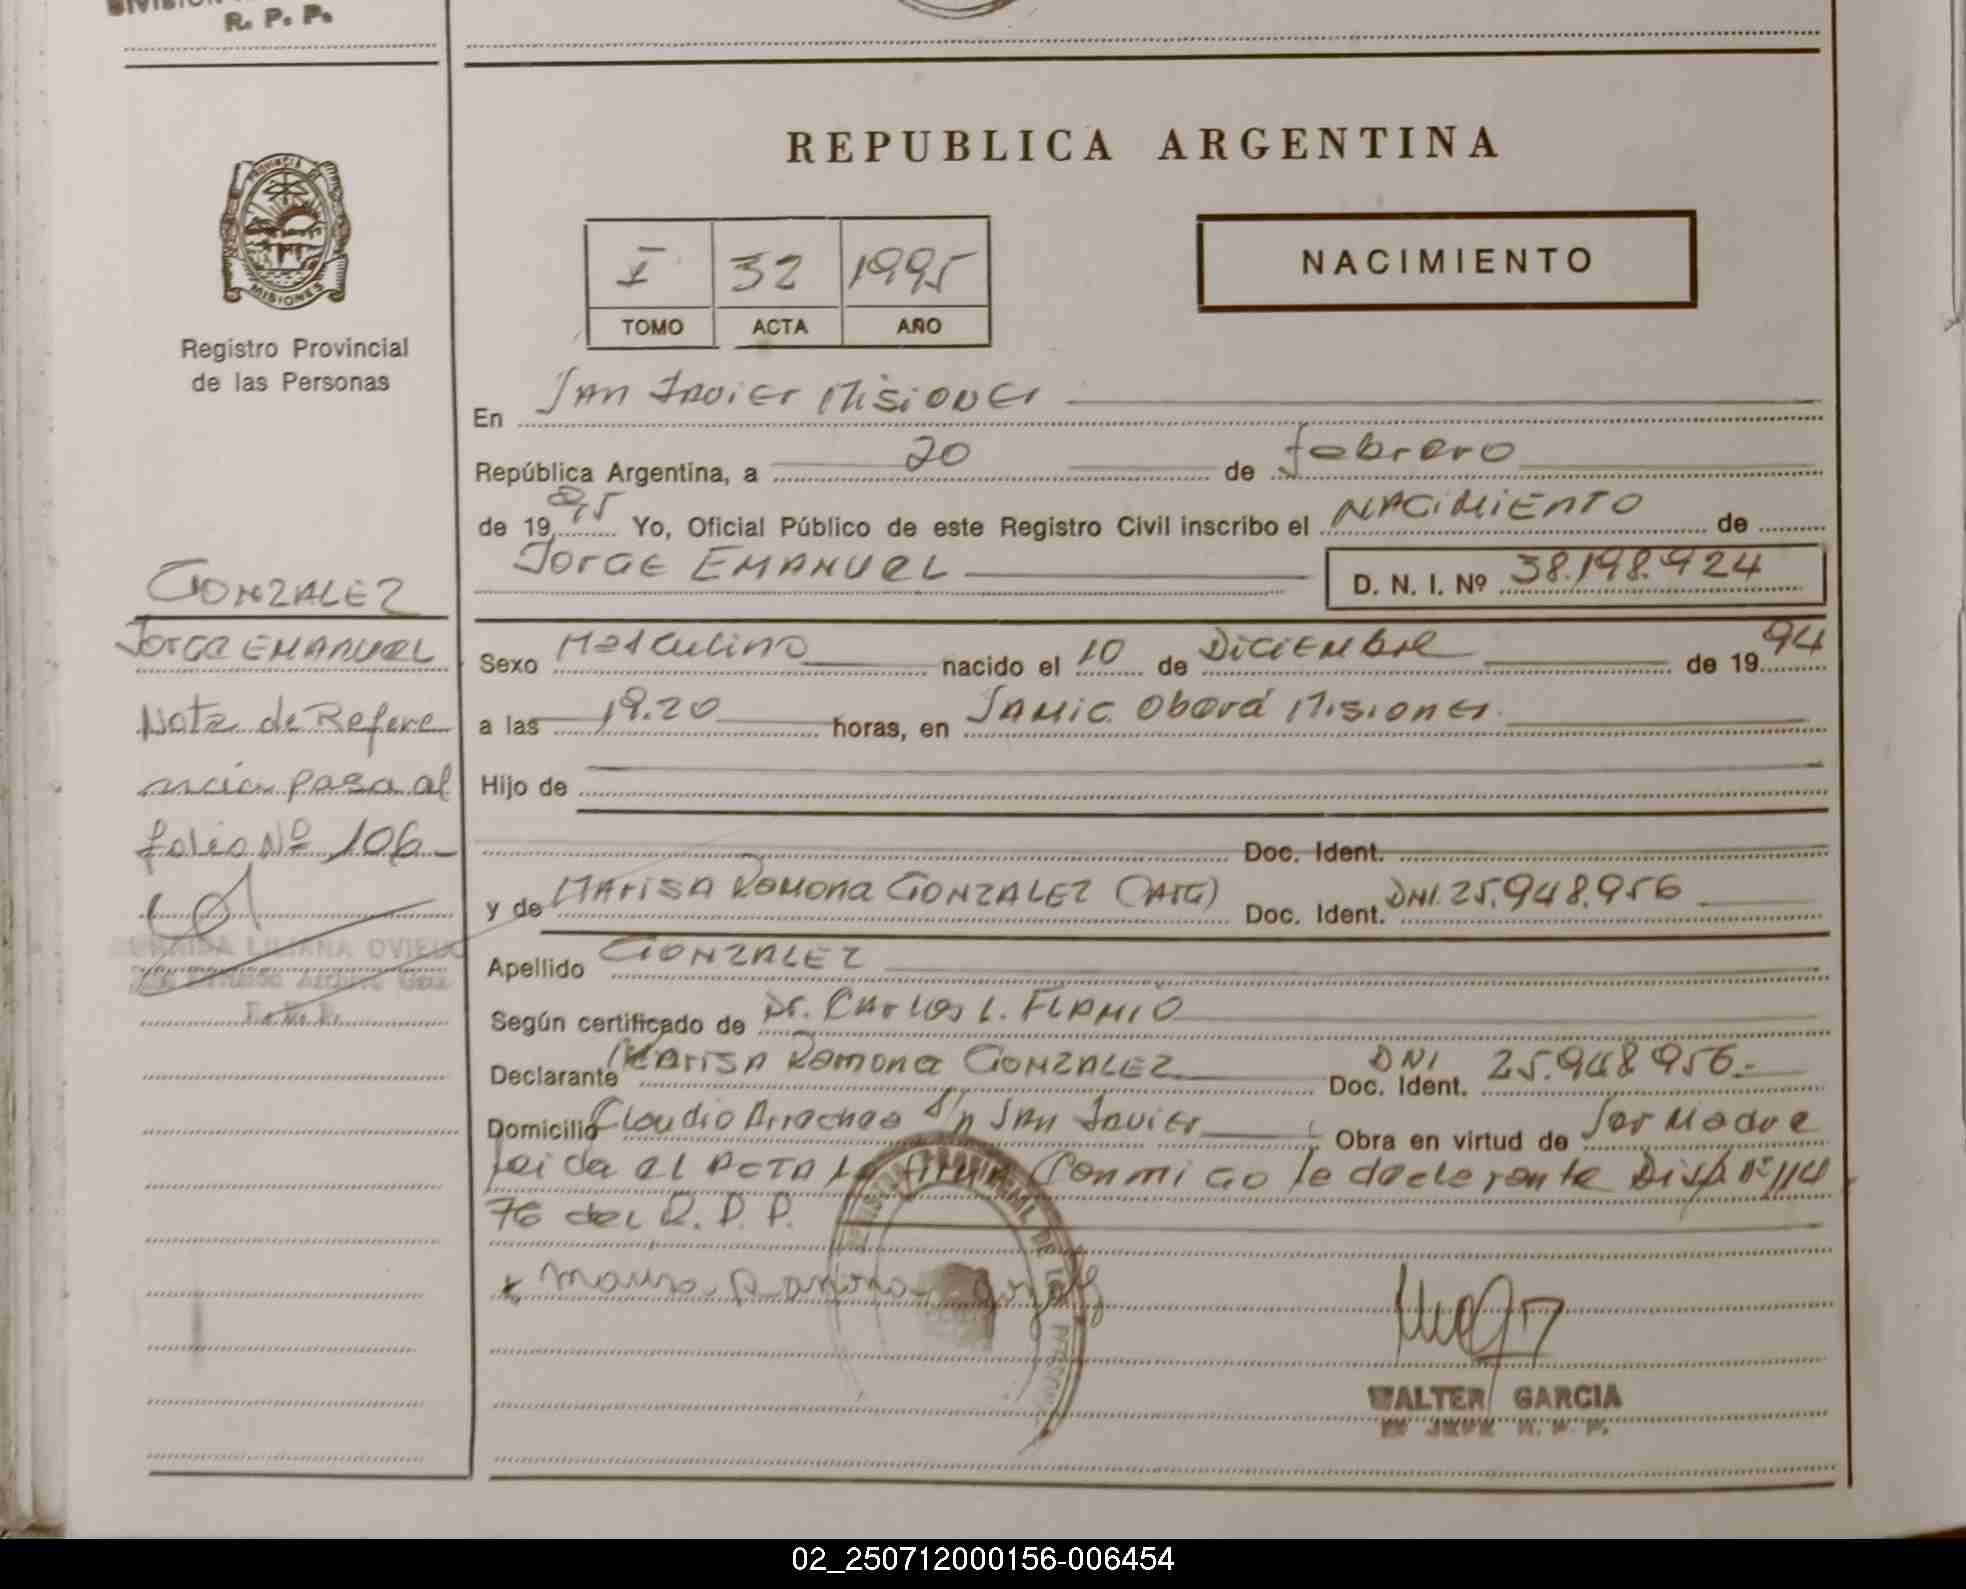 R. P. P.
PROVINCIA DE
MISIONES
Registro Provincial
de las Personas
REPUBLICA ARGENTINA
I 32 1995
TOMO ACTA AÑO
NACIMIENTO
En San Javier Misiones
República Argentina, a 20 de febrero
de 19 95 Yo, Oficial Público de este Registro Civil inscribo el NACIMIENTO de
JORGE EMANUEL D. N. I. Nº 38.198.924
GONZALEZ
JORGE EMANUEL
Nota de Refere
ncia pasa al
folio Nº 106
LILIANA OVIEDO
R. P. P.
Sexo Masculino nacido el 10 de Diciembre de 19 94
a las 19.20 horas, en SAMIC Oberá Misiones
Hijo de
Doc. Ident.
y de MARISA Ramona GONZALEZ (ARG) Doc. Ident. DNI. 25.948.956
Apellido GONZALEZ
Según certificado de Dr. Carlos L.
Declarante MARISA Ramona GONZALEZ DNI Doc. Ident. 25.948.956.-
Domicilio Claudio Arrechea S/n SAN Javier Obra en virtud de Ser Madre
leida el ACTA la firma Conmigo la declarante Disp. Nº 114
76 del R. P. P.
WALTER GARCIA
R. P. P.
02_250712000156-006454